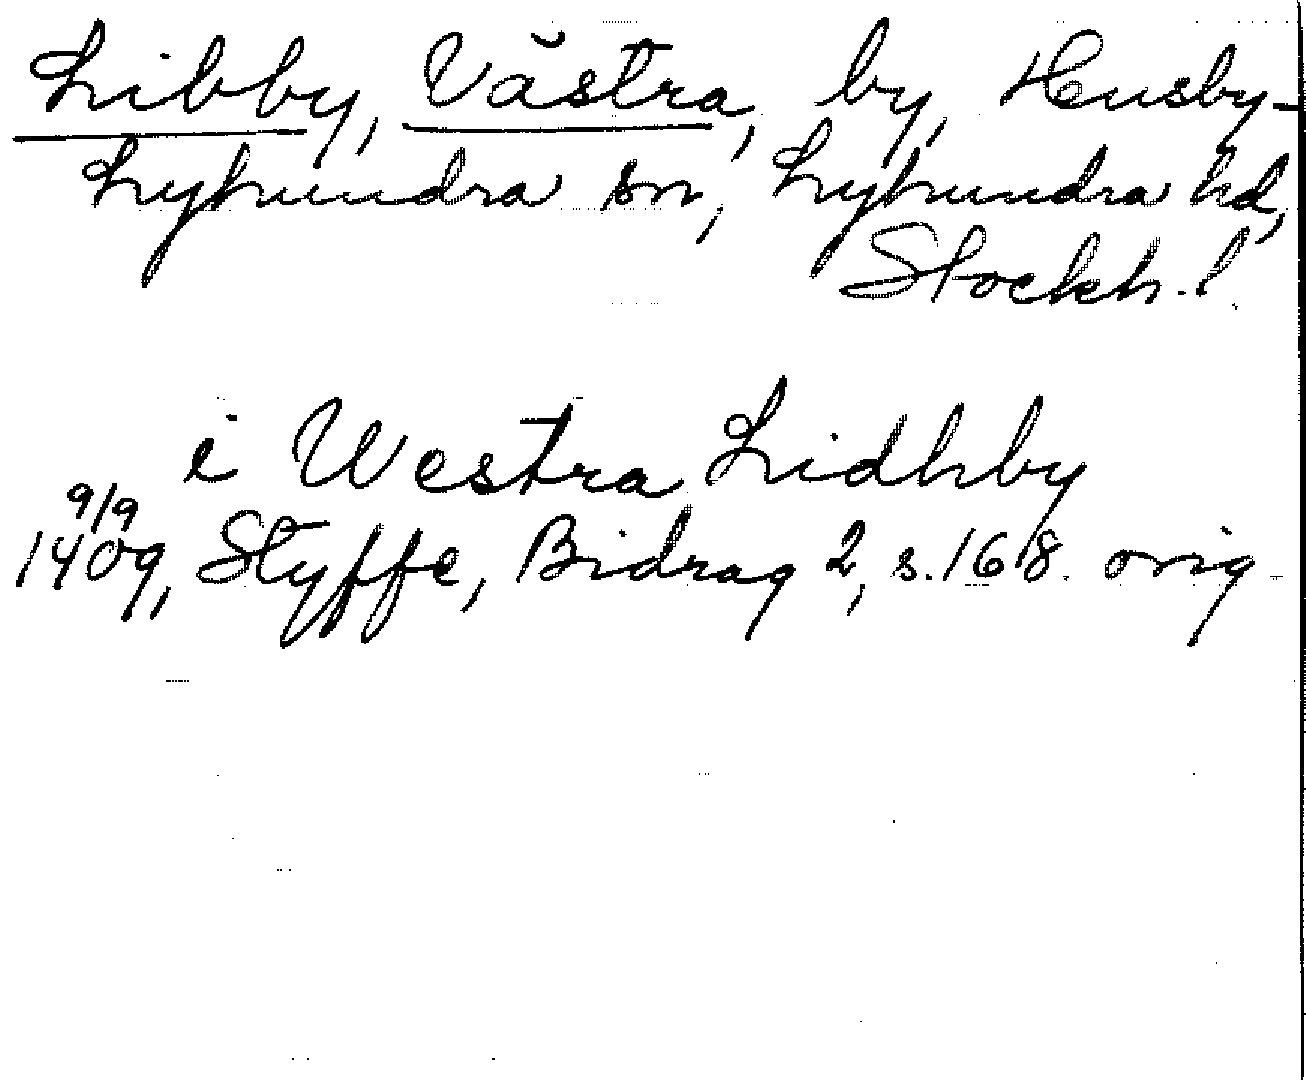 Libby, Västra, by, Husby-
Lyhundra sn, Lyhundra hd,
Stockh. l.
i Westra Lidhby
9/9
1409, Styffe, Bidrag 2, s. 168. orig